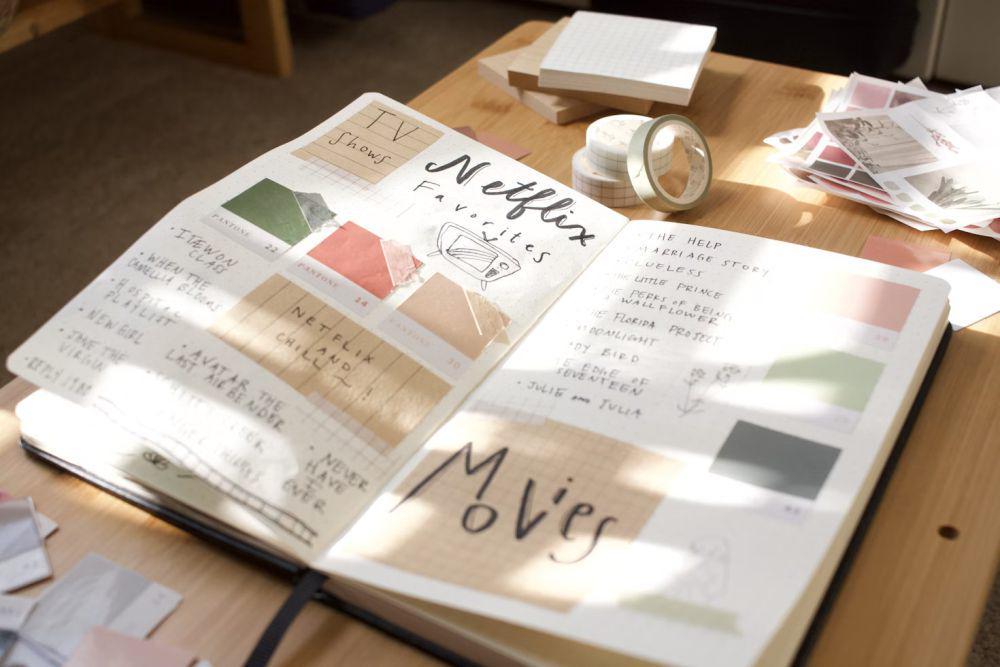 TV
Shows
Netflix
Favorites
PANTONE
22
PANTONE
24
PANTONE
30
• ITEWON
CLASS
• WHEN THE
CAMELLIA BLOOMS
• HOSPITAL
PLAYLIST
• NEW GIRL
• JANE THE
VIRGIN
• REPLY 1988
NETFLIX
AND
CHILL~!
• AVATAR THE
LAST AIRBENDER
• NEVER
HAVE I
EVER
• THE HELP
MARRIAGE STORY
CLUELESS
THE LITTLE PRINCE
THE PERKS OF BEING
A WALLFLOWER
THE FLORIDA PROJECT
MOONLIGHT
DY BIRD
EDGE OF
SEVENTEEN
• JULIE AND JULIA
Movies